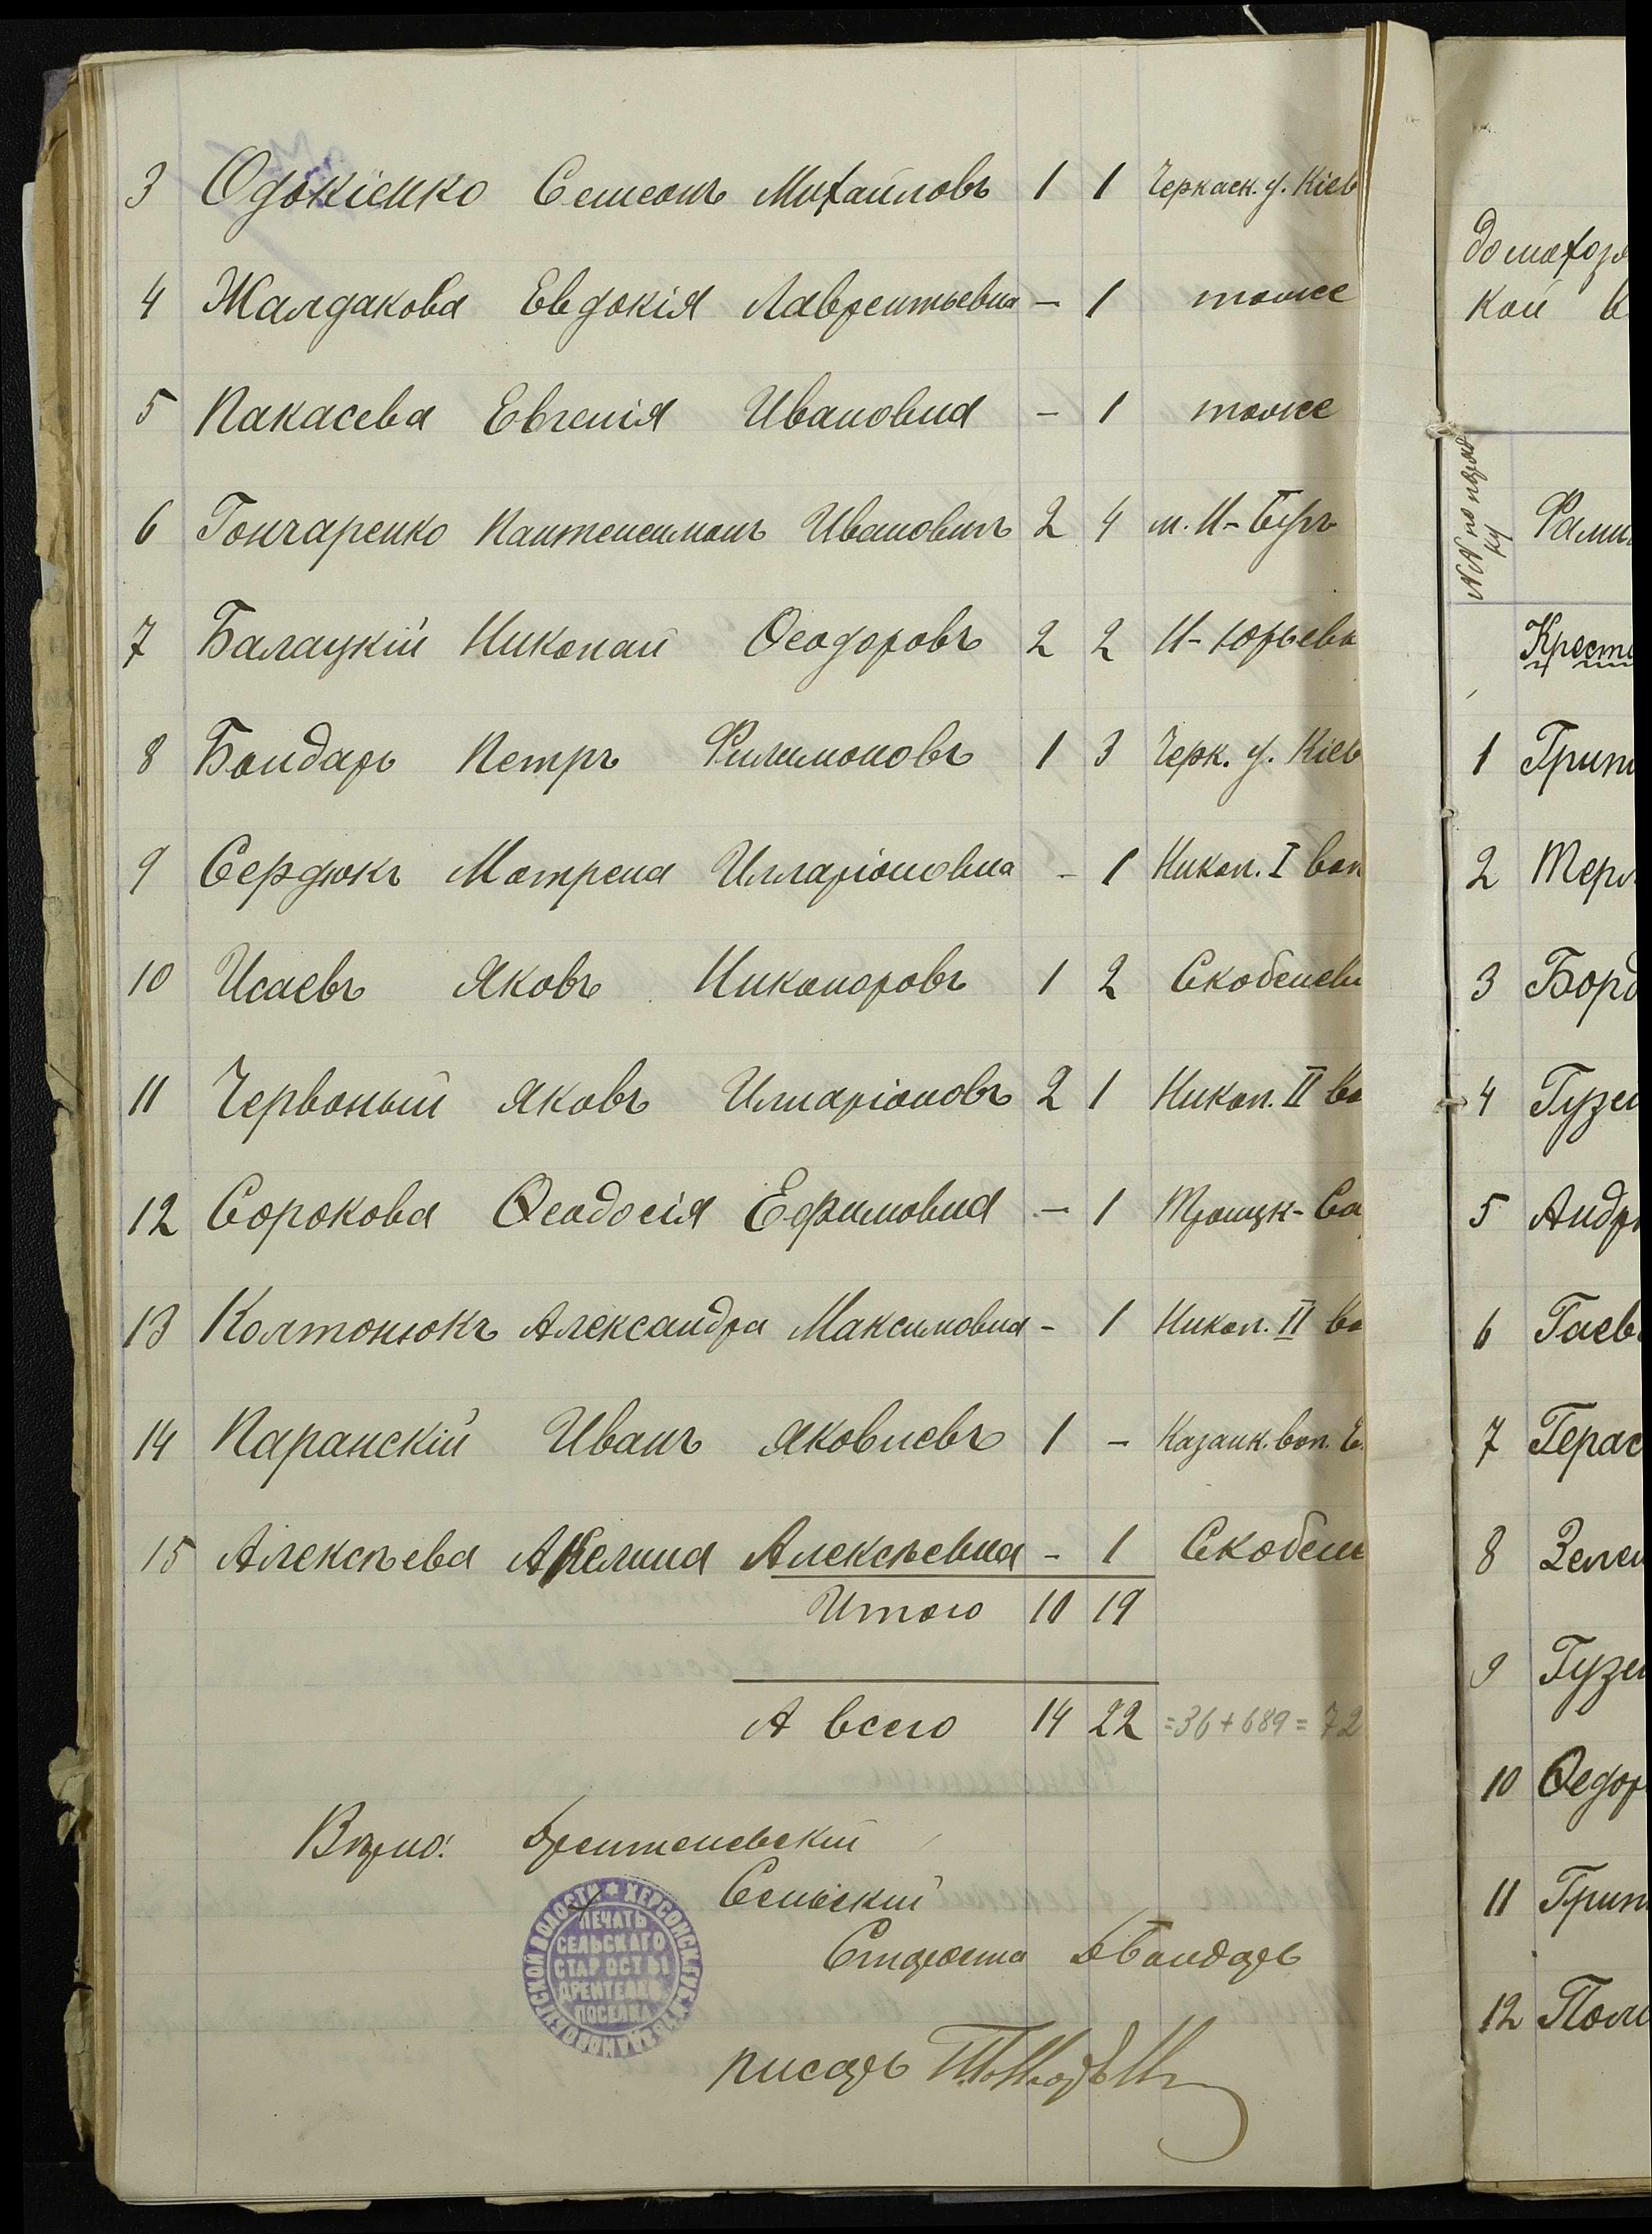 3 Одокіенко Семеонъ Михайловъ 1 1 Черкаск. у. Кіев
4 Жалдакова Евдокія Лаврентьевна — 1 тоже
5 Какасева Евгенія Ивановна — 1 тоже
6 Гончаренко Пантелеимонъ Ивановичъ 2 4 м. Н-Бугъ
7 Балацкій Николай Ѳеодоровъ 2 2 Н-Юрьевк
8 Бондарь Петръ Филимоновъ 1 3 Черк. у. Кіев
9 Сердюкъ Матрена Илларіоновна — 1 Никол. I вол
10 Исаевъ Яковъ Никаноровъ 1 2 Скобелев
11 Червоный Яковъ Иларіоновъ 2 1 Никол. II во
12 Сорокова Ѳеодосія Ефимовна — 1 Троицк-Са
13 Колтонюкъ Александра Максимовна — 1 Никол. II во
14 Паранскій Иванъ Яковлевъ 1 — Казанк. вол.
15 Алексѣева Акелина Алексѣевна — 1 Скобел
Итого 10 19
А всего 14 22 =36+689=72
Вѣрно: Дрентельевскій
Сельскій
Староста Бондарь
ПЕЧАТЬ
СЕЛЬСКАГО
СТАРОСТЫ
ДРЕНТЕЛЬЕВ
ПОСЕЛКА
писарь
домахозя
кой в
№№ по порядку
Фами
Крест
1 Грит
2 Терл
3 Борд
4 Гузе
5 Андр
6 Гаев
7 Герас
8 Зелен
9 Гузе
10 Ѳедор
11 Грип
12 Поли